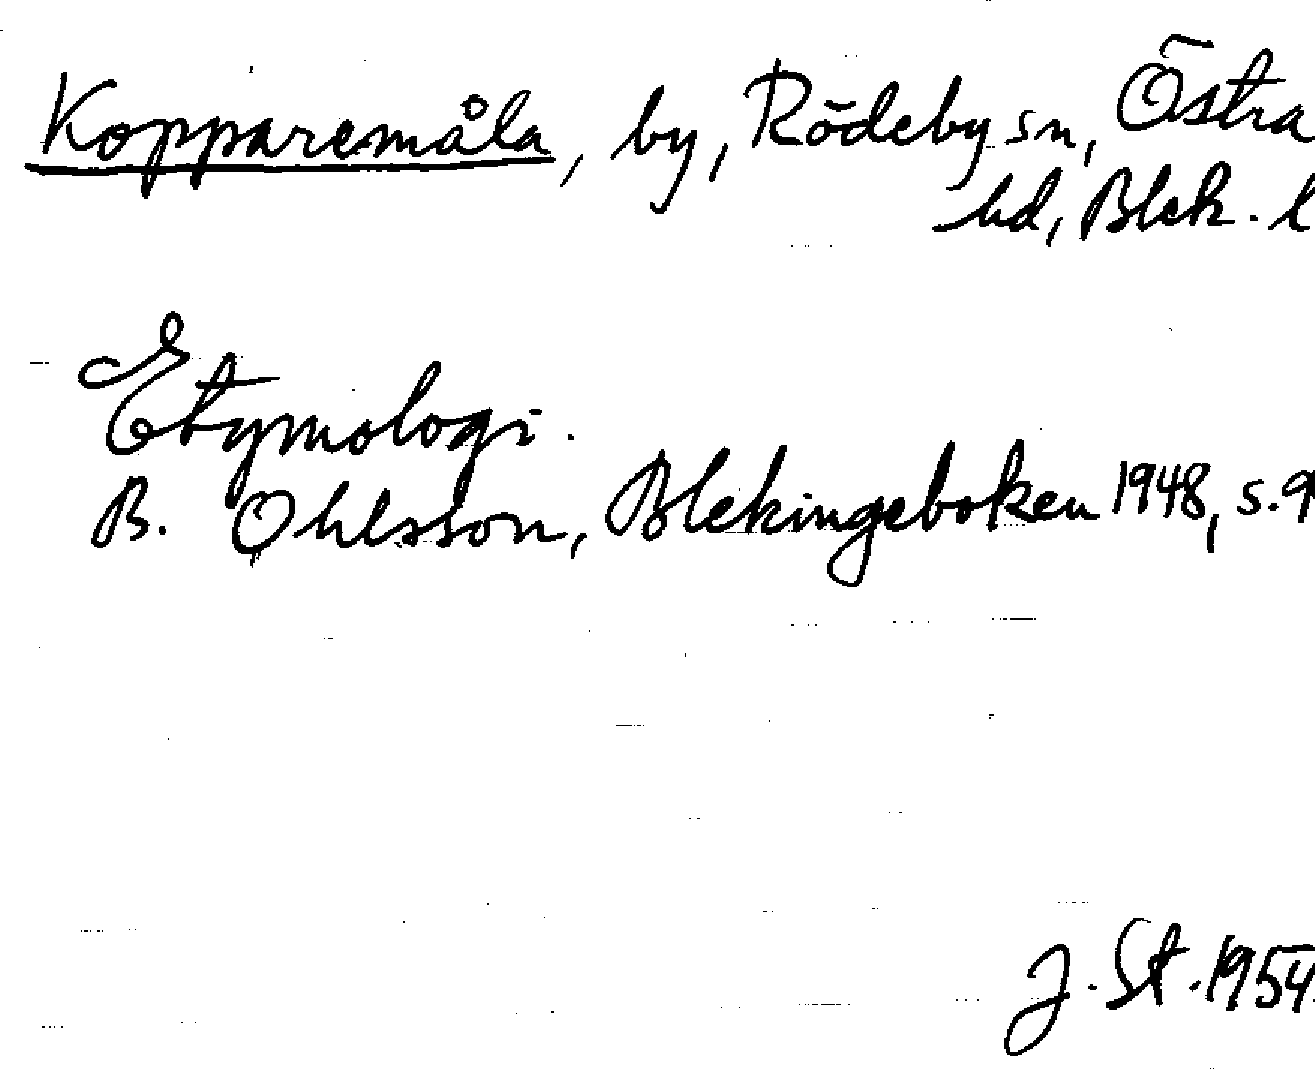 Kopparemåla, by, Rödeby sn, Östra
hd, Blek. l
Etymologi.
B. Ohlsson, Blekingeboken 1948, s. 9
J. St. 1954.